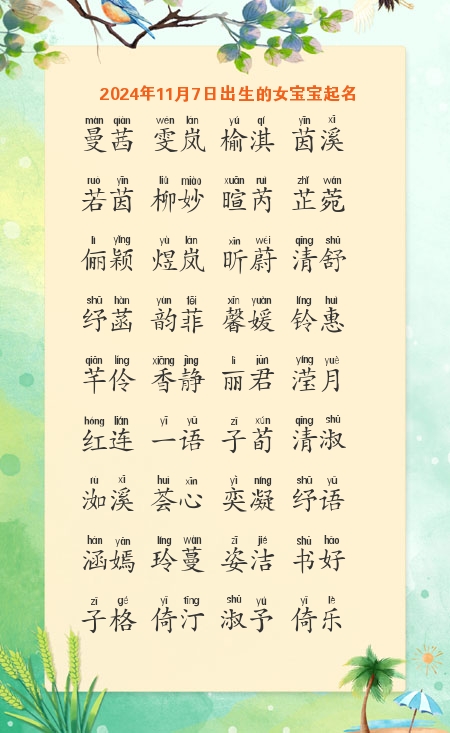 2024年11月7日出生的女宝宝起名
màn qiàn wén lán yú qí yīn xī
曼茜 雯岚 榆淇 茵溪
ruò yīn liǔ miào xuān ruì zhǐ wǎn
若茵 柳妙 暄芮 芷菀
lì yǐng yù lán xīn wèi qīng shū
俪颖 煜岚 昕蔚 清舒
shū hàn yùn fēi xīn yuàn líng huì
纾菡 韵菲 馨媛 铃惠
qiān líng xiāng jìng lì jūn yíng yuè
芊伶 香静 丽君 滢月
hóng lián yī yǔ zǐ xún qīng shū
红连 一语 子荀 清淑
rù xī huì xīn yì níng shū yǔ
洳溪 荟心 奕凝 纾语
hán yān líng wàn zī jié shū hǎo
涵嫣 玲蔓 姿洁 书好
zǐ gé yǐ tīng shū yú yǐ lè
子格 倚汀 淑予 倚乐